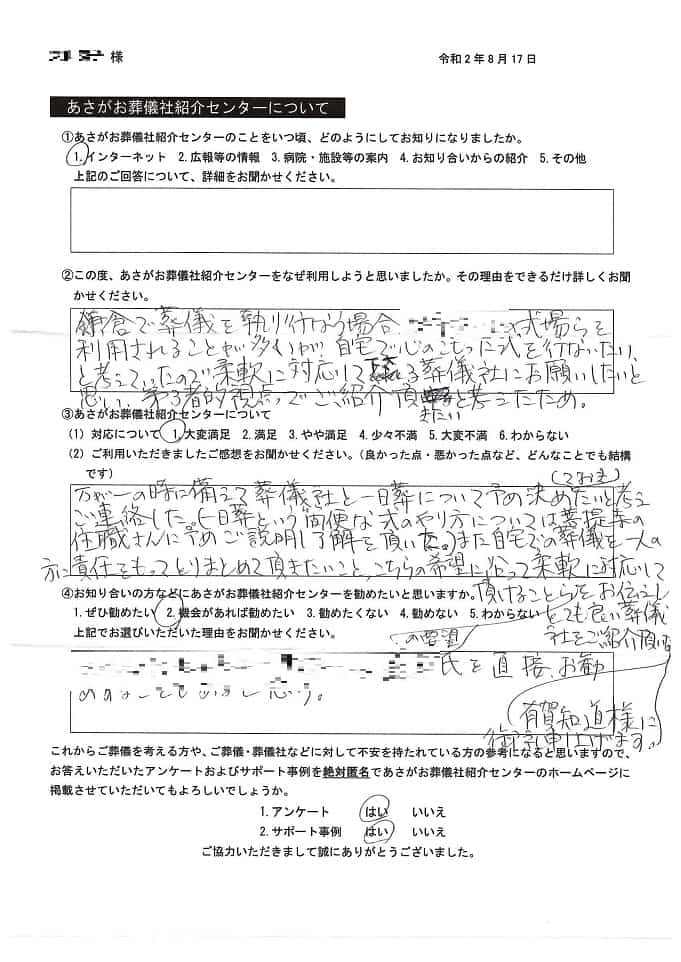 様
令和2年8月17日
あさがお葬儀社紹介センターについて
①あさがお葬儀社紹介センターのことをいつ頃、どのようにしてお知りになりましたか。
1.インターネット 2.広報等の情報 3.病院・施設等の案内 4.お知り合いからの紹介 5.その他
上記のご回答について、詳細をお聞かせください。
②この度、あさがお葬儀社紹介センターをなぜ利用しようと思いましたか。その理由をできるだけ詳しくお聞
かせください。
鎌倉で葬儀を執り行なう場合 式場らを
利用されることが多くが、自宅で心のこもった式を行ないたい、
と考えていたので柔軟に対応して下さる葬儀社にお願いしたいと
思い、第3者的視点でご紹介頂きたいと考えたため。
③あさがお葬儀社紹介センターについて
(1) 対応について 1.大変満足 2.満足 3.やや満足 4.少々不満 5.大変不満 6.わからない
(2) ご利用いただきましたご感想をお聞かせください。(良かった点・悪かった点など、どんなことでも結構
です)
万が一の時に備えて葬儀社と一日葬について予め決めたいと考え
(ておき)
ご連絡した。一日葬という簡便な式のやり方については菩提寺の
住職さんに予めご説明し了解を頂いた。また自宅での葬儀を一人の
方に責任をもってとりまとめて頂きたいこと、こちらの希望に沿って柔軟に対応して
頂けることらをお伝えし
とても良い葬儀
社をご紹介頂い
④お知り合いの方などにあさがお葬儀社紹介センターを勧めたいと思いますか。
1.ぜひ勧めたい 2.機会があれば勧めたい 3.勧めたくない 4.勧めない 5.わからない
上記でお選びいただいた理由をお聞かせください。
の要望
氏を直接、お勧
思う。
有賀知道様に
御礼申し上げます。
これからご葬儀を考える方や、ご葬儀・葬儀社などに対して不安を持たれている方の参考になると思いますので、
お答えいただいたアンケートおよびサポート事例を絶対匿名であさがお葬儀社紹介センターのホームページに
掲載させていただいてもよろしいでしょうか。
1.アンケート はい いいえ
2.サポート事例 はい いいえ
ご協力いただきまして誠にありがとうございました。